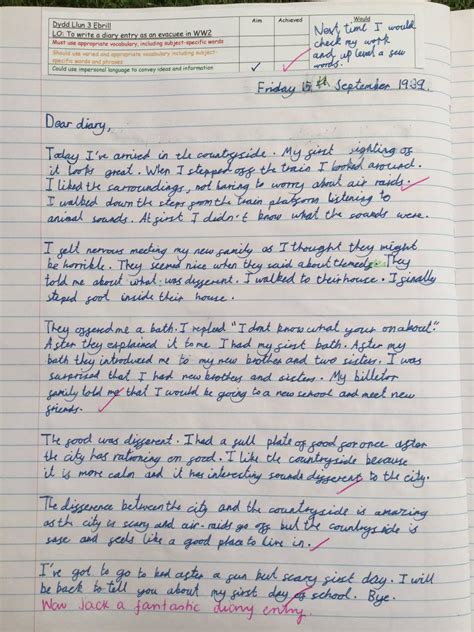 Dydd Llun 3 Ebrill
Aim
Achieved
Would
LO: To write a diary entry as an evacuee in WW2
Must use appropriate vocabulary, including subject-specific words
Should use varied and appropriate vocabulary, including subject-specific words and phrases
Could use impersonal language to convey ideas and information
Next time I would
check my work
and up level a few
words.
Friday 15th September 1939.
Dear diary,
Today I've arrived in the countryside. My first sighting of
it looks great. When I stepped off the train I looked around.
I liked the surroundings, not having to worry about air raids.
I walked down the steps from the train platform listening to
animal sounds. At first I didn't know what the sounds were.
I felt nervous meeting my new family as I thought they might
be horrible. They seemed nice when they said about They
told me about what was different. I walked to their house. I finally
steped foot inside their house.
They offered me a bath. I replied "I dont know what your on about".
After they explained it to me I had my first bath. After my
bath they introduced me to my new brother and two sisters. I was
surprised that I had new brothers and sisters. My billetor
family told me that I would be going to a new school and meet new
friends.
The food was different. I had a full plate of food for once after
the city has rationing on food. I like the countryside because
it is more calm and it has interesting sounds different to the city.
The difference between the city and the countryside is amazing
as the city is scary and air-raids go off but the countryside is
safe and feels like a good place to live in.
I've got to go to bed after a fun but scary first day. I will
be back to tell you about my first day of school. Bye.
Wow Jack a fantastic diary entry.